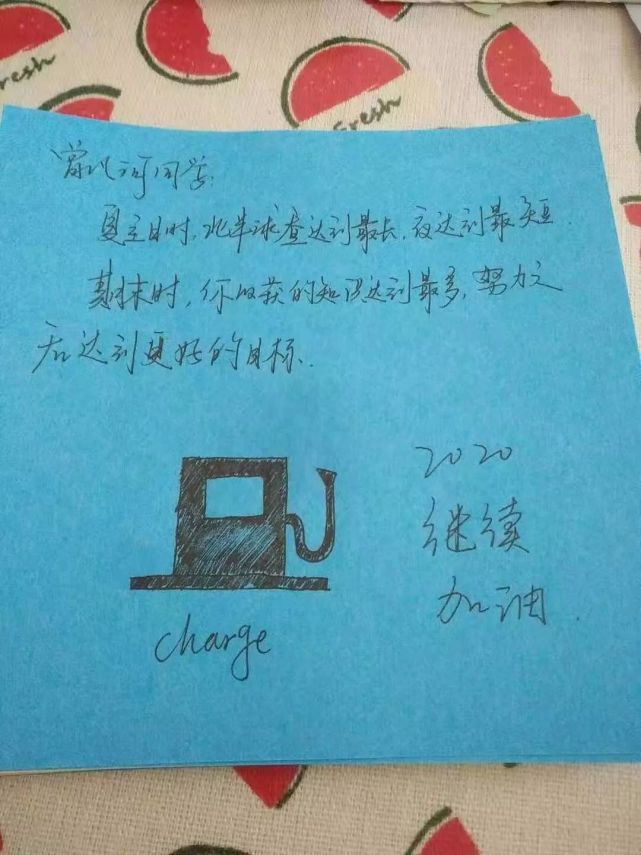 Fresh
Fresh
同学:
夏至日时,北半球昼达到最长,夜达到最短.
期末时,你收获的知识达到最多,努力之
后达到更好的目标.
2020
继续
加油.
charge